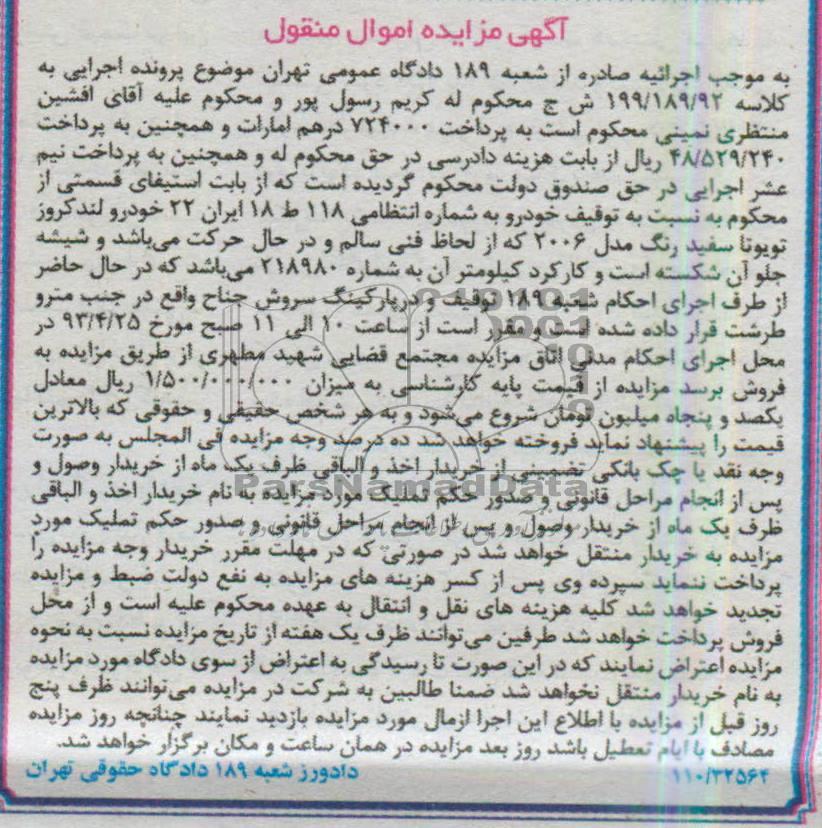 آگهی مزایده اموال منقول
به موجب اجرائیه صادره از شعبه ۱۸۹ دادگاه عمومی تهران موضوع پرونده اجرایی به
کلاسه ۱۹۹/۱۸۹/۹۲ ش ج محکوم له کریم رسول پور و محکوم علیه آقای افشین
منتظری نمینی محکوم است به پرداخت ۷۲۴۰۰۰ درهم امارات و همچنین به پرداخت
۴۸/۵۲۹/۲۴۰ ریال از بابت هزینه دادرسی در حق محکوم له و همچنین به پرداخت نیم
عشر اجرایی در حق صندوق دولت محکوم گردیده است که از بابت استیفای قسمتی از
محکوم به نسبت به توقیف خودرو به شماره انتظامی ۱۱۸ ط ۱۸ ایران ۲۲ خودرو لندکروز
تویوتا سفید رنگ مدل ۲۰۰۶ که از لحاظ فنی سالم و در حال حرکت می‌باشد و شیشه
جلو آن شکسته است و کارکرد کیلومتر آن به شماره ۲۱۸۹۸۰ می‌باشد که در حال حاضر
از طرف اجرای احکام شعبه ۱۸۹ توقیف و درپارکینگ سروش جناح واقع در جنب مترو
طرشت قرار داده شده است و مقرر است از ساعت ۱۰ الی ۱۱ صبح مورخ ۹۳/۴/۲۵ در
محل اجرای احکام مدنی اتاق مزایده مجتمع قضایی شهید مطهری از طریق مزایده به
فروش برسد مزایده از قیمت پایه کارشناسی به میزان ۱/۵۰۰/۰۰۰/۰۰۰ ریال معادل
یکصد و پنجاه میلیون تومان شروع می‌شود و به هر شخص حقیقی و حقوقی که بالاترین
قیمت را پیشنهاد نماید فروخته خواهد شد ده درصد وجه مزایده فی المجلس به صورت
وجه نقد یا چک بانکی تضمینی از خریدار اخذ و الباقی ظرف یک ماه از خریدار وصول و
پس از انجام مراحل قانونی و صدور حکم تملیک مورد مزایده به نام خریدار اخذ و الباقی
ظرف یک ماه از خریدار وصول و پس از انجام مراحل قانونی و صدور حکم تملیک مورد
مزایده به خریدار منتقل خواهد شد در صورتی که در مهلت مقرر خریدار وجه مزایده را
پرداخت ننماید سپرده وی پس از کسر هزینه های مزایده به نفع دولت ضبط و مزایده
تجدید خواهد شد کلیه هزینه های نقل و انتقال به عهده محکوم علیه است و از محل
فروش پرداخت خواهد شد طرفین می‌توانند ظرف یک هفته از تاریخ مزایده نسبت به نحوه
مزایده اعتراض نمایند که در این صورت تا رسیدگی به اعتراض از سوی دادگاه مورد مزایده
به نام خریدار منتقل نخواهد شد ضمنا طالبین به شرکت در مزایده می‌توانند ظرف پنج
روز قبل از مزایده با اطلاع این اجرا ازمال مورد مزایده بازدید نمایند چنانچه روز مزایده
مصادف با ایام تعطیل باشد روز بعد مزایده در همان ساعت و مکان برگزار خواهد شد.
۱۱۰/۳۲۵۶۴ دادورز شعبه ۱۸۹ دادگاه حقوقی تهران
ParsNamadData